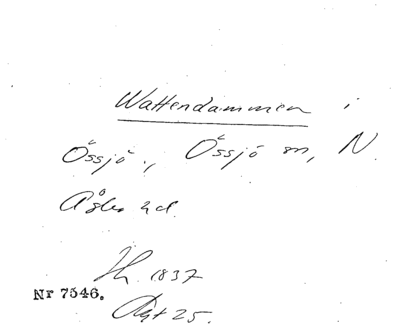 Wattendammen i
Össjö., Össjö sn, N.
Åsbo hd.
Hn. 1837
Nr 7546.
Akt 25.